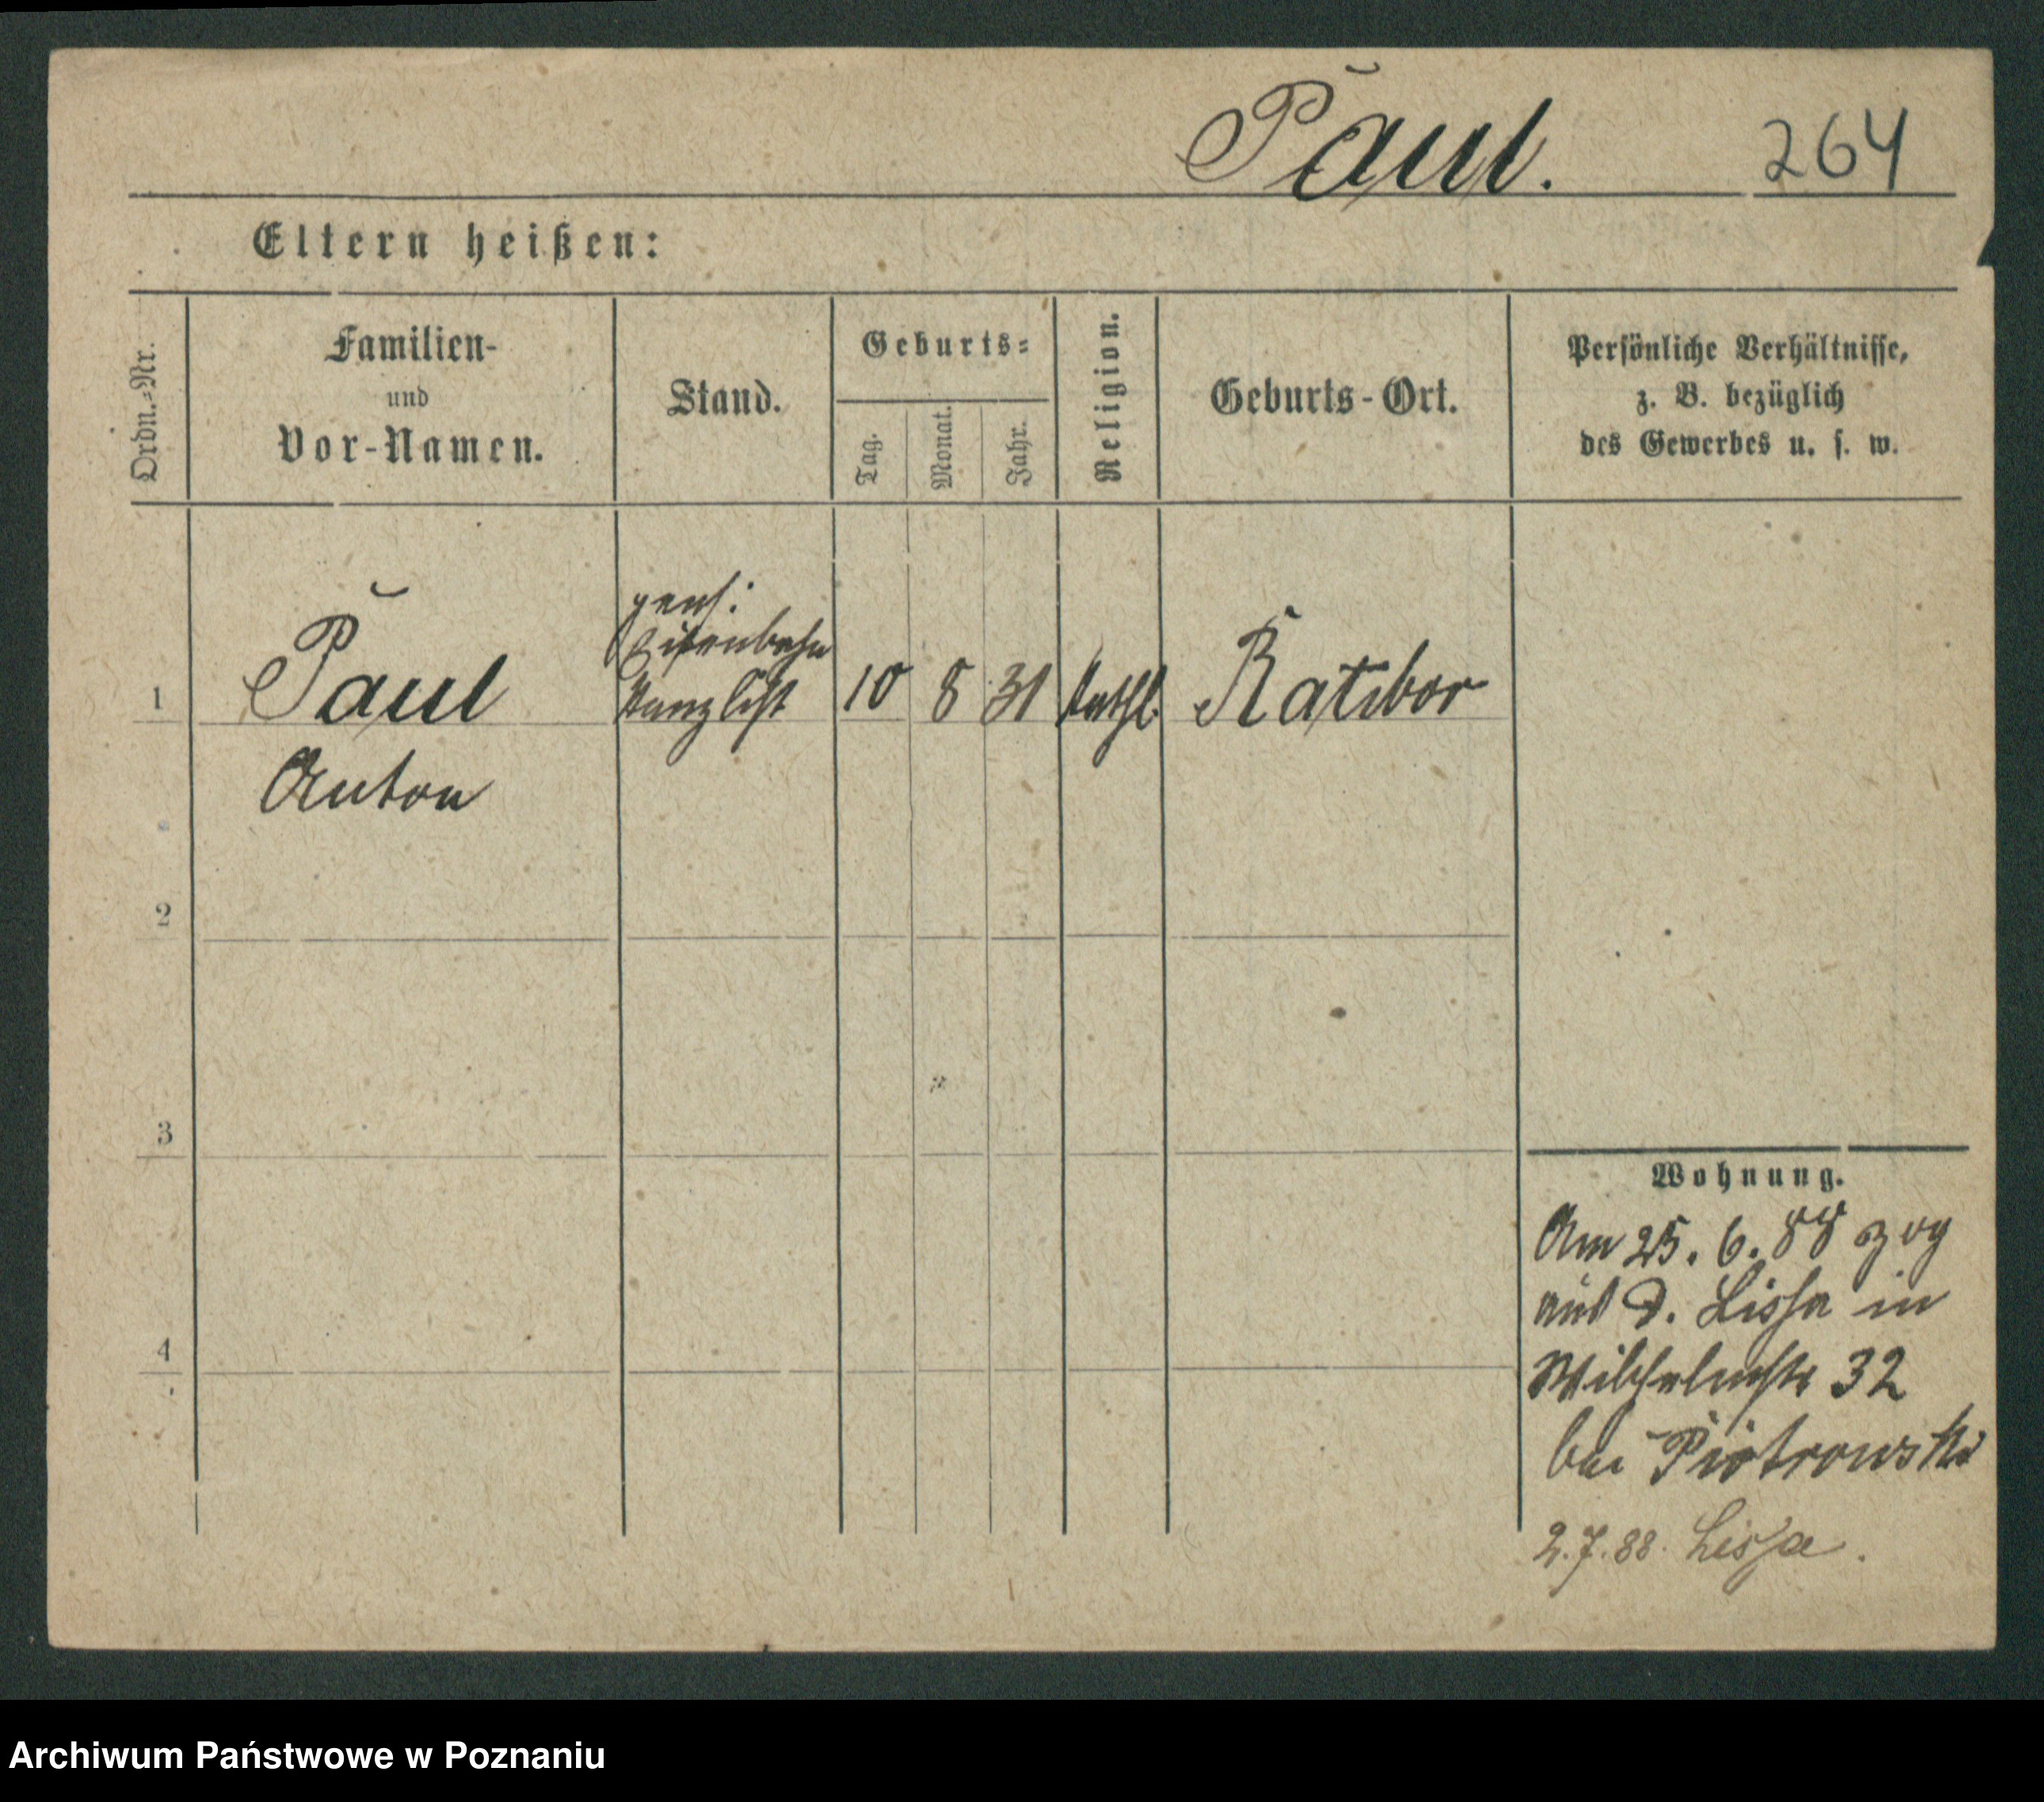 Paul. 264
Eltern heißen:
Ordn.-Nr.
Familien-
und
Vor-Namen.
Stand.
Geburts-
Tag.
Monat.
Jahr.
Religion.
Geburts-Ort.
Persönliche Verhältnisse,
z. B. bezüglich
des Gewerbes u. s. w.
pens.
Eisenbahn
1 Paul Kanzlist 10 8 31 kathl. Ratibor
Anton
2
3
4
Wohnung.
Am 25. 6. 88 zog
aus d. Lissa in
Wilhelmstr 32
bei Piotrowski
2.7.88. Lissa.
Archiwum Państwowe w Poznaniu